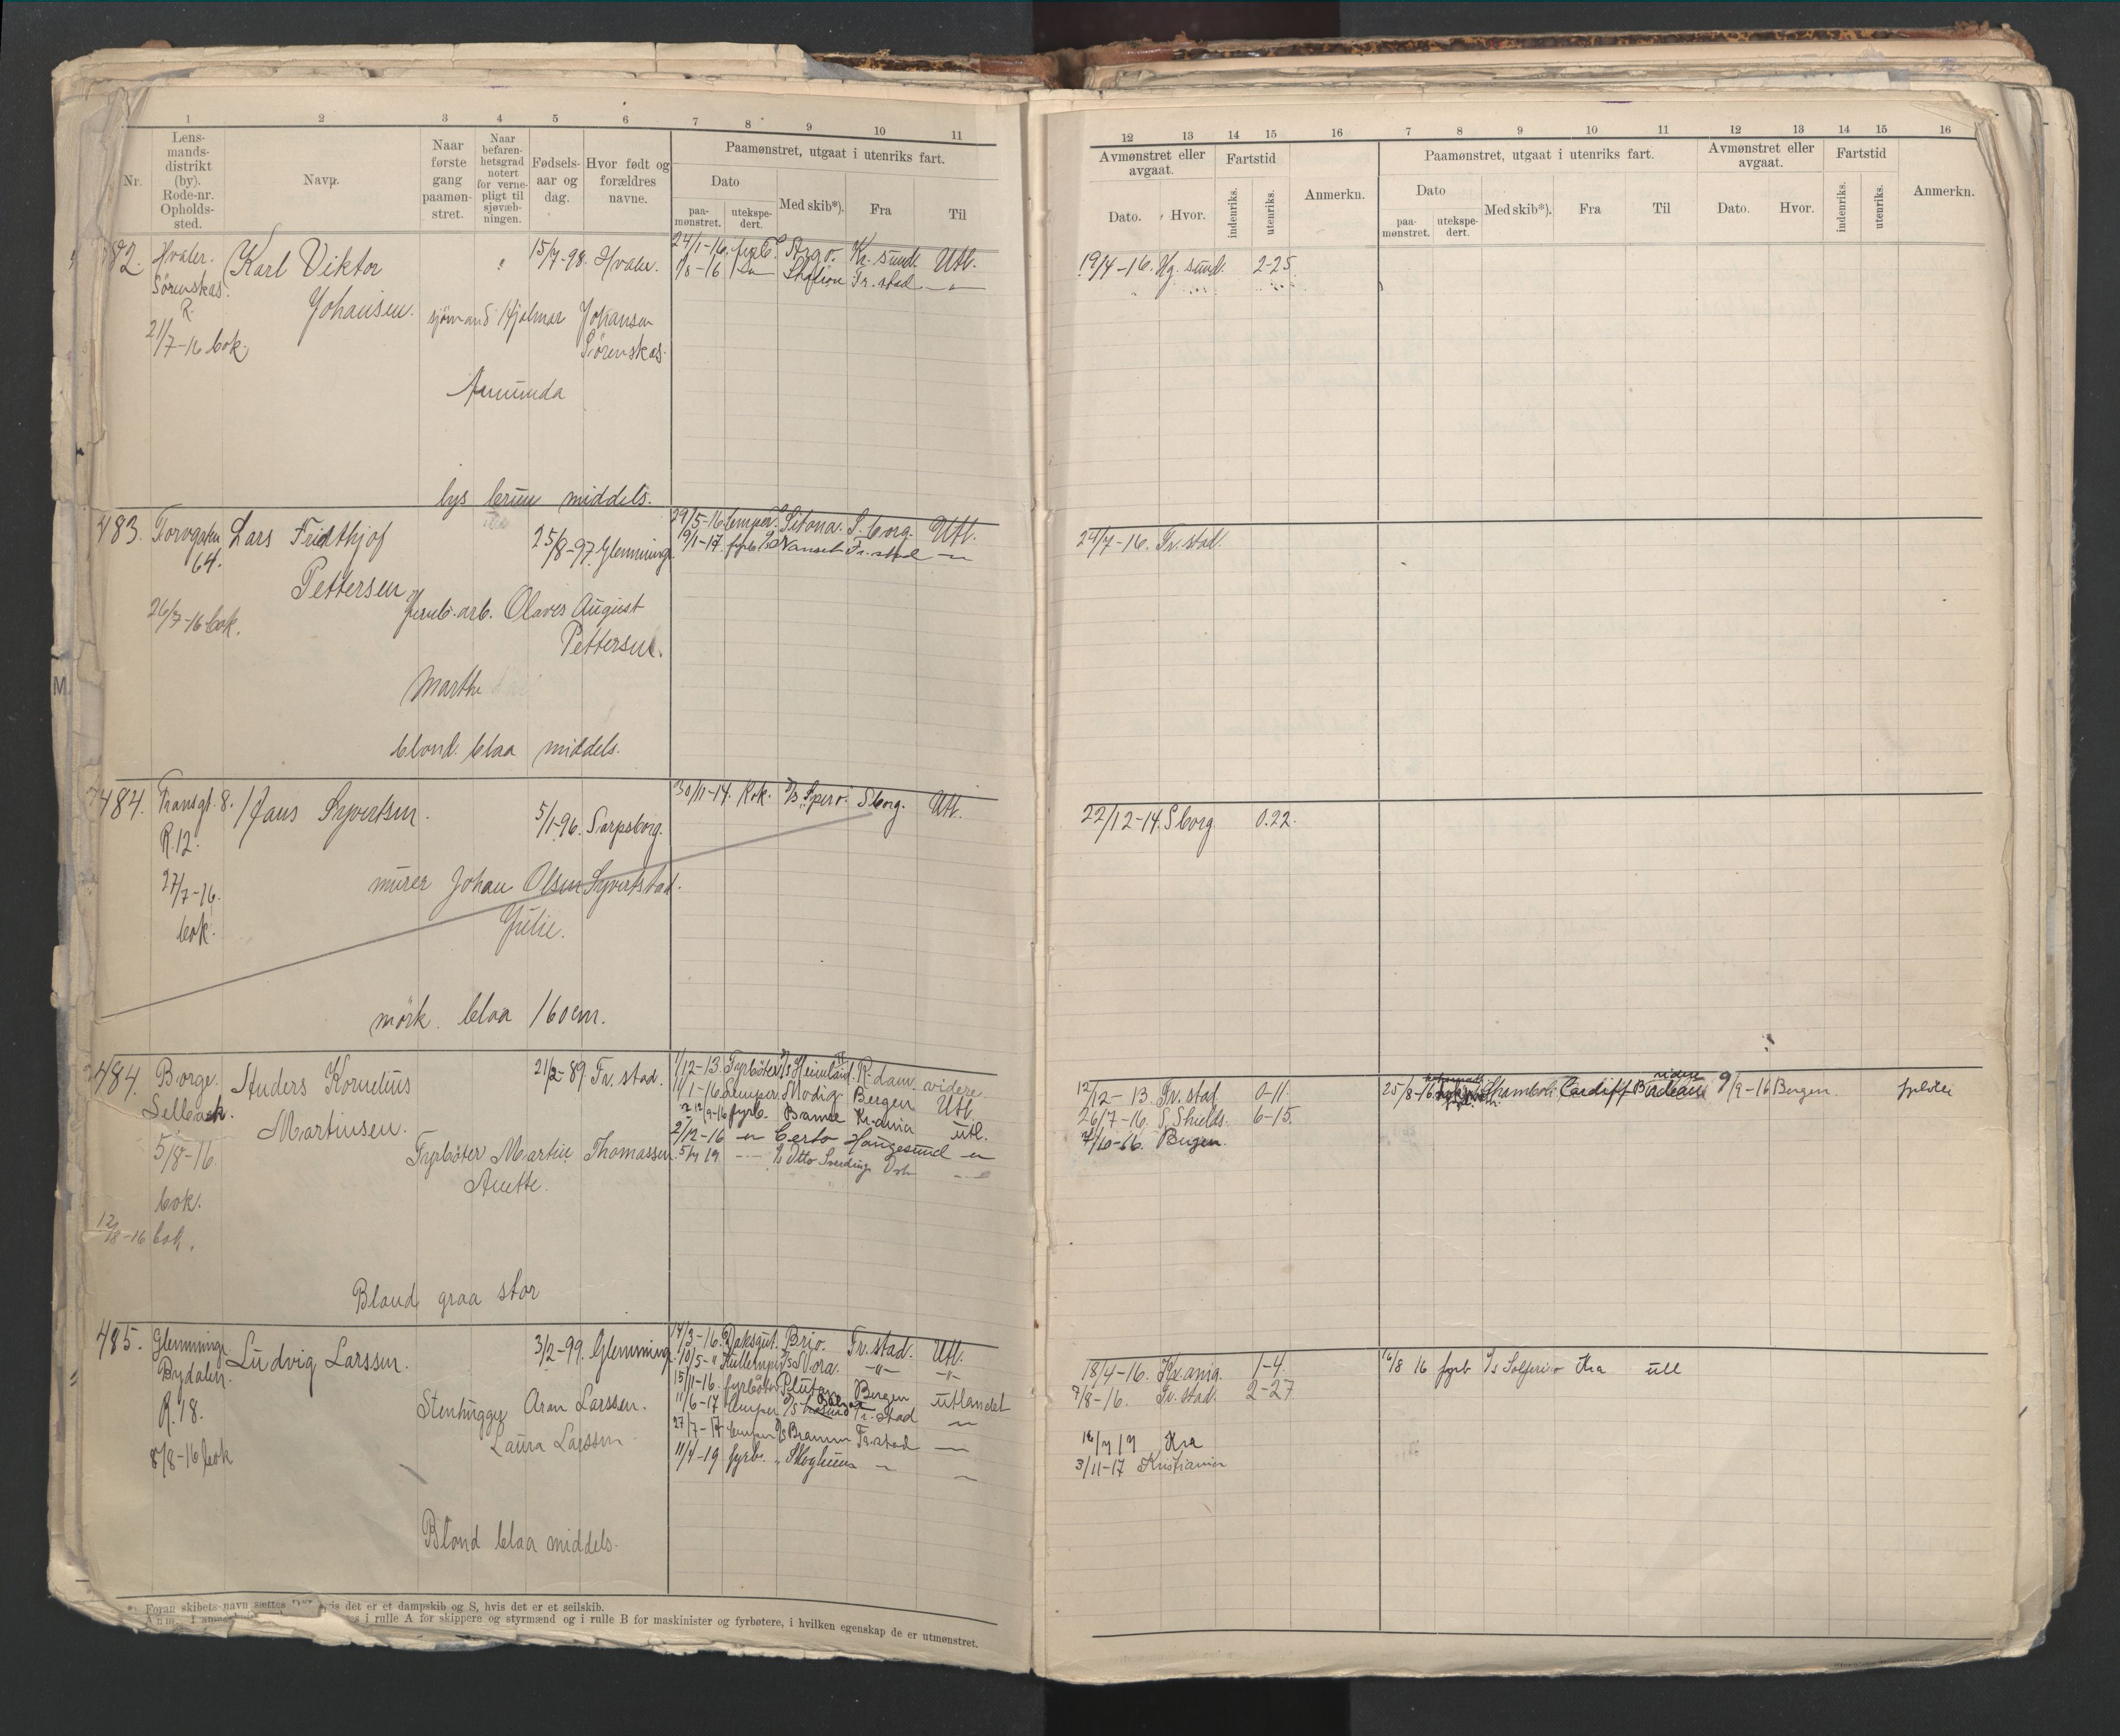 1 2 3 4 5 6 7 8 9 10 11
Nr.
Lens-
mands-
distrikt
(by).
Rode-nr.
Opholds-
sted.
Navn.
Naar
første
gang
paamøn-
stret.
Naar
befaren-
hetsgrad
notert
for verne-
pligt til
sjøvæb-
ningen.
Fødsels-
aar og
dag.
Hvor født og
forældres
navne.
Paamønstret, utgaat i utenriks fart.
Dato
paa-
mønstret.
utekspe-
dert.
Med skib*).
Fra
Til
482. Hvaler. Karl Viktor 15/7-98. Hvaler. 24/1-16. fyrb. Argo. Kr. sund. Utl.
Sørenskas. 1/8-16 Fr. stad
R. Johansen. sjømand Hjalmar Johansen
21/7-16 bok. Sørenskas.
Amunda
lys brun middels.
483. Torvgaten Lars Fridthjof 25/8-97. Glemminge 29/5-16 Lemper. Sitona. S. borg. Utl.
64. 19/1-17. fyrb. Nanset Fr. stad
Pettersen
26/7-16 bok. Jernb. arb. Olaves August
Pettersen.
Marthe
blond. blaa middels.
484. Transgt. 8. Hans Syvertsen. 5/1-96. Sarpsborg. 30/11-14. Kok. D/S Spero. Sborg. Utl.
R. 12.
27/7-16. murer Johan Olsen Syvertstad.
bok. Julie.
mörk. blaa 160 cm.
484. Borge. Anders Kornelius 21/2-89. Fr. stad. 1/12-13. Fyrböter Heimland R-dam videre
Selbach. Martinsen. 11/1-16 Lemper Modig Bergen Utl.
2/9-16 fyrb. Bamse Kr.ania utl.
5/8-16. Fyrböter Martin Thomassen 2/12-16 Certo Haugesund
Anette. 19 Otto Sverdrup
bok.
12/8-16 bok.
Blond graa stor
485. Glemminge Ludvig Larssen. 3/2-99. Glemminge 14/3-16. Dæksgut. Brio. Fr. stad. Utl.
Bydalen. 10/5-" Kullemper D/S Nora. -"- -"-
R. 18. 15/11-16. fyrböter Pluto Bergen utlandet
Stenhugger Aron Larssen. 11/6-17 Lemper D/S Fr. stad
Laura Larssen 27/7-17 Lemper D/S Bramm Fr. stad
8/8-16 bok 11/4-19 fyrb. " Skoghem
Blond blaa middels.
*) Foran skibets navn sættes hvis det er et dampskib og S, hvis det er et seilskib.
i rulle A for skippere og styrmænd og i rulle B for maskinister og fyrbøtere, i hvilken egenskap de er utmønstret.
12 13 14 15 16 7 8 9 10 11 12 13 14 15 16
Avmønstret eller
avgaat.
Dato. Hvor.
Fartstid
indenriks. utenriks.
Anmerkn.
Paamønstret, utgaat i utenriks fart.
Dato
paa-
mønstret.
utekspe-
dert.
Med skib*). Fra Til
Avmønstret eller
avgaat.
Dato. Hvor.
Fartstid
indenriks. utenriks.
Anmerkn.
19/4-16. Hg. sund. 2-25.
24/7-16. Fr. stad.
22/12-14. Sborg. 0.22.
12/12-13. Fr. stad 0-11. 25/8-16 Cardiff videre 9/9-16 Bergen.
26/7-16. S. Shields. 6-15.
7/10-16. Bergen.
18/4-16. Kr.ania. 1-4. 16/8 16 fyrb D/s Solferino Kra utl
9/8-16. Fr. stad. 2-27.
16/7 17 Kra
3/11-17 Kristiania